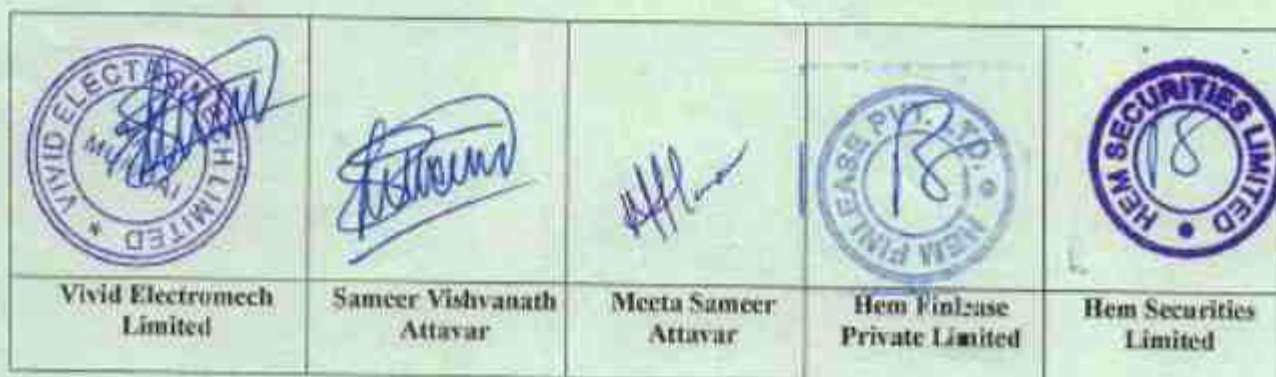 VIVID ELECTROMECH LIMITED
MUMBAI
HEM FINLEASE PVT. LTD.
HEM SECURITIES LIMITED
Vivid Electromech
Limited
Sameer Vishvanath
Attavar
Meeta Sameer
Attavar
Hem Finlease
Private Limited
Hem Securities
Limited